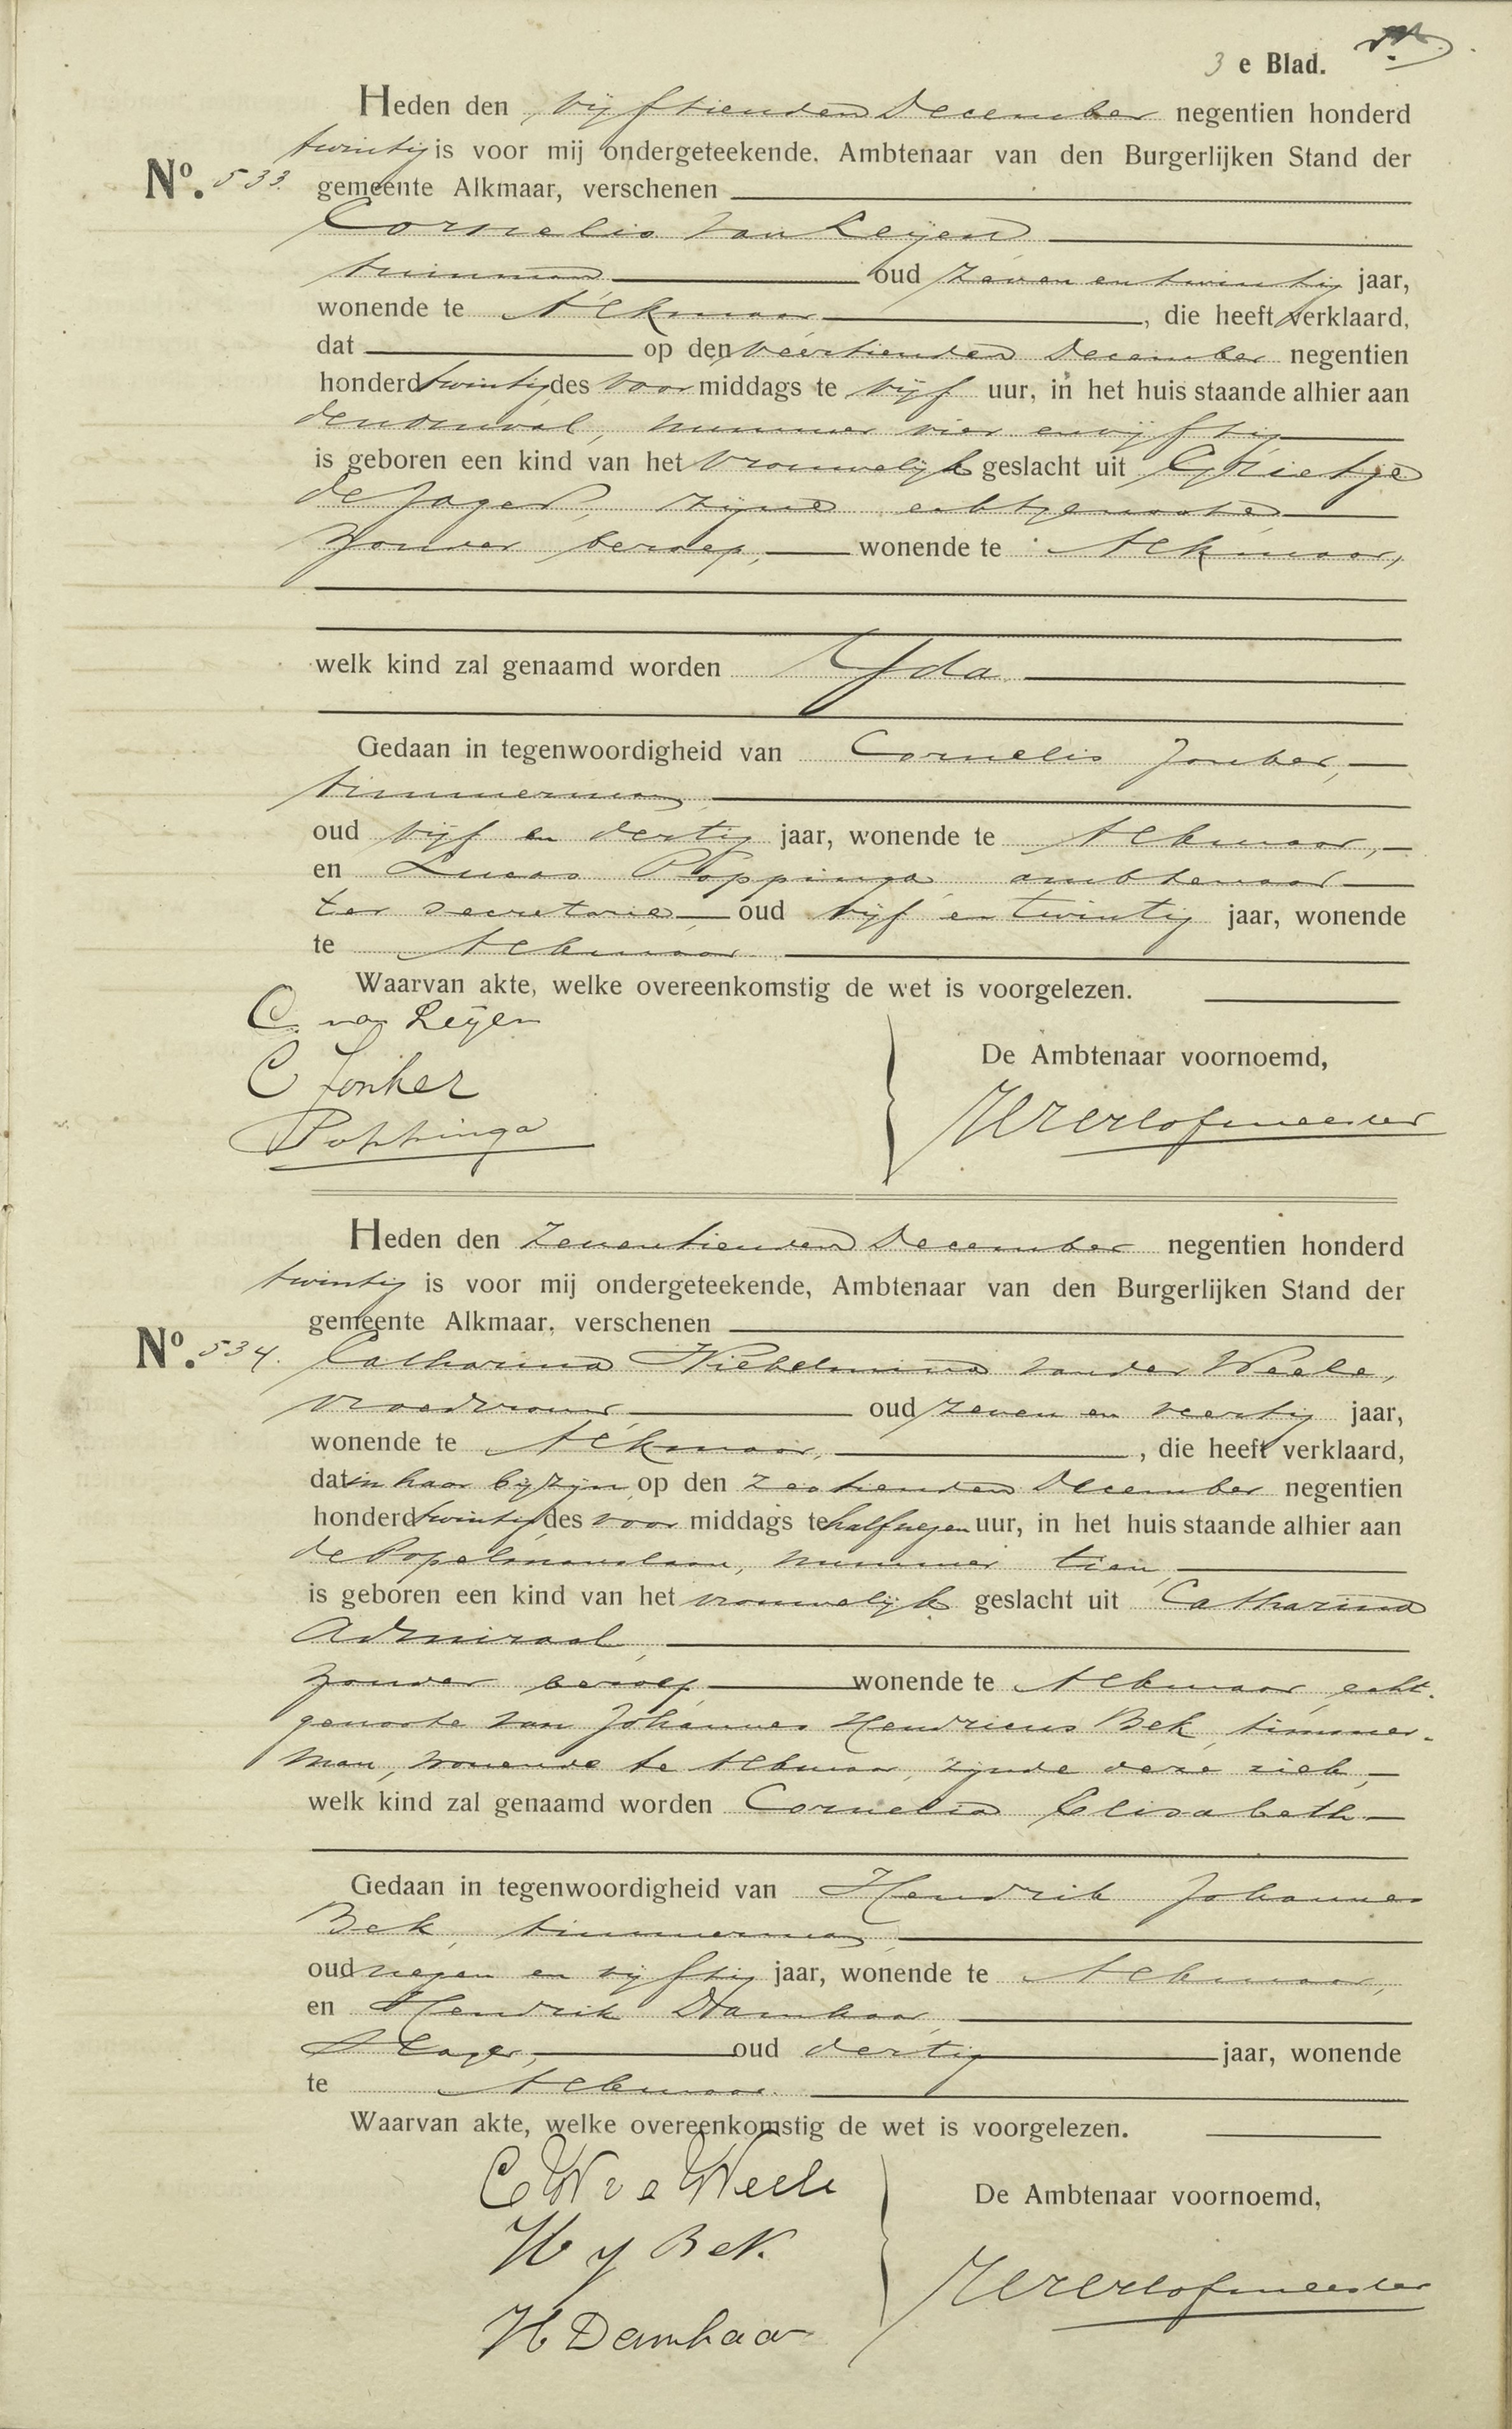 3 e Blad.
Heden den vijftienden December negentien honderd
twintig is voor mij ondergeteekende, Ambtenaar van den Burgerlijken Stand der
No. 533. gemeente Alkmaar, verschenen
Cornelis van Leijen
tuinman oud zeven en twintig jaar,
wonende te Alkmaar, die heeft verklaard,
dat op den veertienden December negentien
honderd twintig des voor middags te vijf uur, in het huis staande alhier aan
den omval, nummer vier en vijftig
is geboren een kind van het vrouwelijk geslacht uit Grietje
de Jager, zijne echtgenoote,
zonder beroep, wonende te Alkmaar,
welk kind zal genaamd worden Yda
Gedaan in tegenwoordigheid van Cornelis Jonker,
timmerman,
oud vijf en dertig jaar, wonende te Alkmaar,
en Lucas Poppinga ambtenaar
ter secretarie, oud vijf en twintig jaar, wonende
te Alkmaar
Waarvan akte, welke overeenkomstig de wet is voorgelezen.
C. van Leijen
C Jonker
Poppinga
De Ambtenaar voornoemd,
Heden den zeventienden December negentien honderd
twintig is voor mij ondergeteekende, Ambtenaar van den Burgerlijken Stand der
gemeente Alkmaar, verschenen
No. 534. Catharina Wilhelmina van der Weele,
vroedvrouw, oud zeven en veertig jaar,
wonende te Alkmaar, die heeft verklaard,
dat in haar bijzijn op den zestienden December negentien
honderd twintig des voor middags te half negen uur, in het huis staande alhier aan
de Popelmanslaan, nummer tien,
is geboren een kind van het vrouwelijk geslacht uit Catharina
Admiraal,
zonder beroep, wonende te Alkmaar echt-
genoote van Johannes Hendricus Bek, timmer-
man, wonende te Alkmaar, zijnde deze ziek,
welk kind zal genaamd worden Cornelia Elisabeth
Gedaan in tegenwoordigheid van Hendrik Johannes
Bek, timmerman,
oud negen en vijftig jaar, wonende te Alkmaar,
en Hendrik Damhaar,
slager, oud dertig jaar, wonende
te Alkmaar.
Waarvan akte, welke overeenkomstig de wet is voorgelezen.
C W v d Weele
H J Bek.
H Damhaar
De Ambtenaar voornoemd,